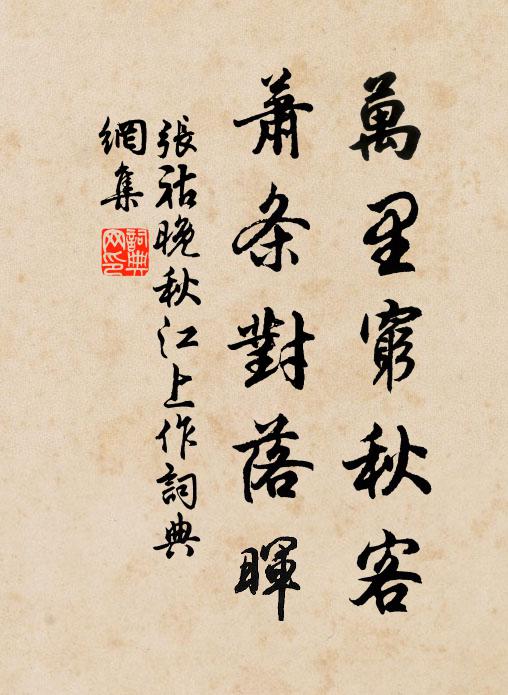 萬里窮秋客
蕭条對落暉
張祜晚秋江上作詞典
網集
詞典網印